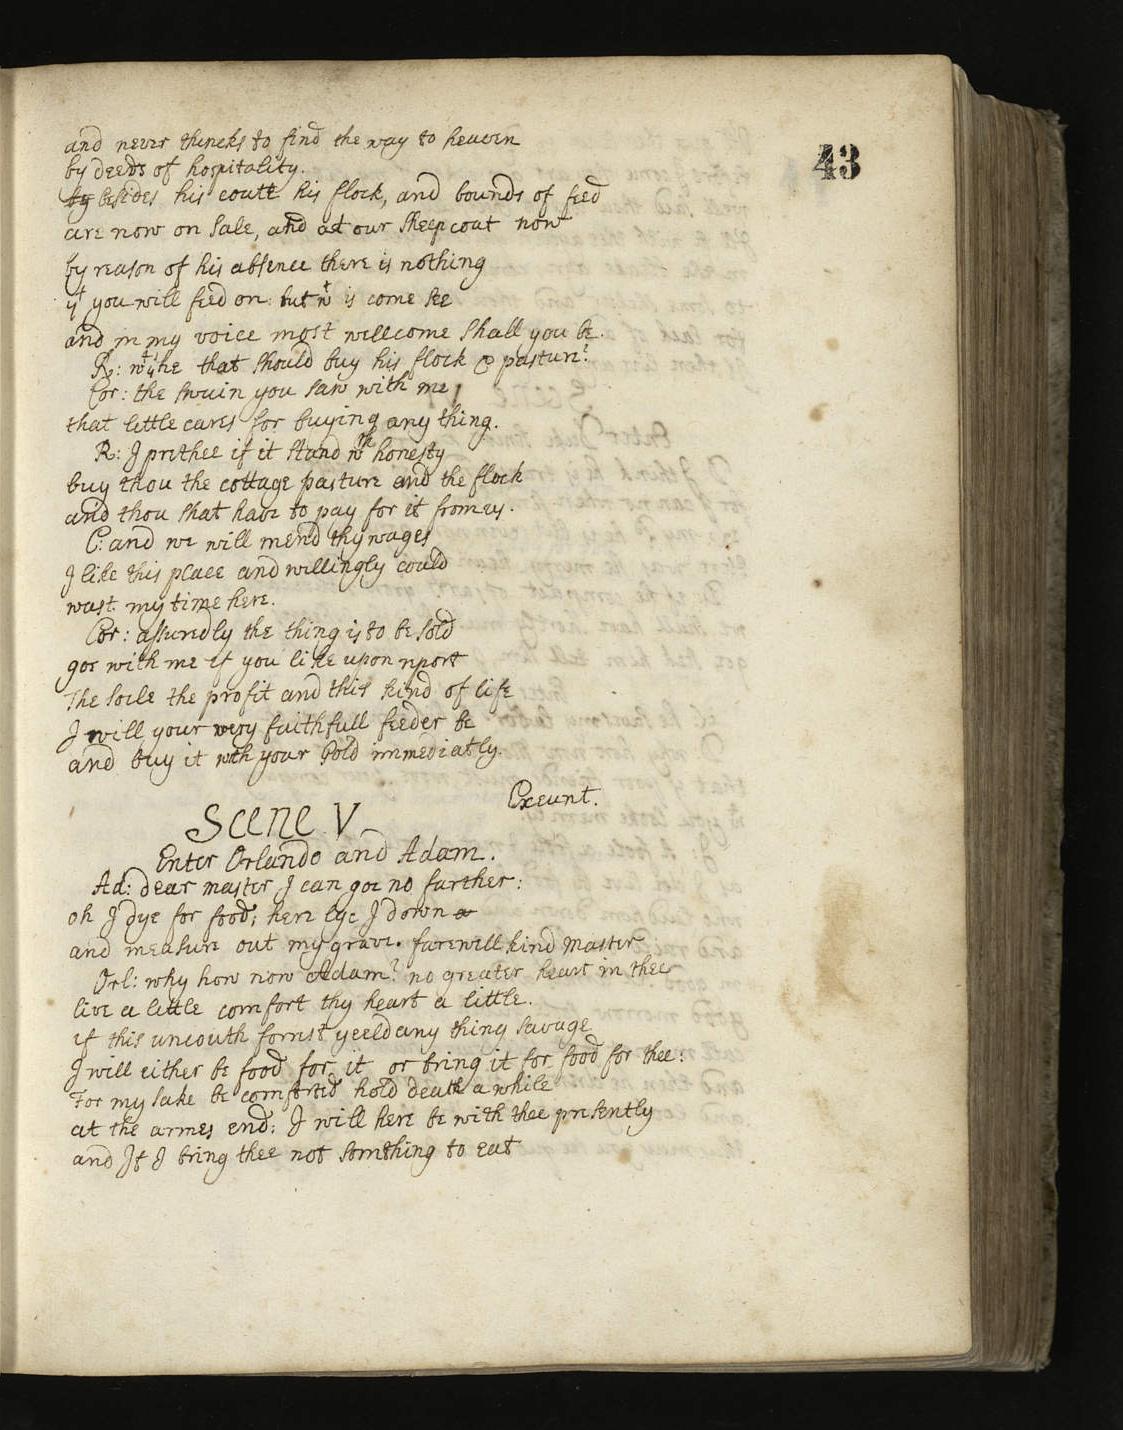 43
and never thincks to find the way to heaven
by deeds of hospitality.
by besides his coate his flock, and bounds of feed
are now on sale, and at our sheepcoat now
by reason of his absence there is nothing
yt you will feed on: but wt is come see
and in my voice most wellcome shall you be.
R: wt's he that should buy his flock & pasture?
Cor: the swain you saw with me
that little cares for buying any thing.
R: I prithee if it stand wth honesty
buy thou the cottage pasture and the flock
and thou shat have to pay for it from us.
C: and we will mend thy wages
I like this place and willingly could
wast my time here.
Cor: assuredly the thing is to be sold
goe with me if you like upon report
The soile the profit and this kind of life
I will your very faithfull feeder be
and buy it with your Gold immediatly.
Exeunt.
Scene V
Enter Orlando and Adam.
Ad: dear master I can goe no farther:
oh I dye for food; here lye I down
and measure out my grave. farewell kind master
Orl: why how now Adam? no greater heart in thee
live a little comfort thy heart a little.
if this uncouth forrest yeeld any thing savage
I will either be food for it or bring it for food for thee:
For my sake be comforted hold death a while
at the armes end: I will here be with thee presently
and If I bring thee not something to eat